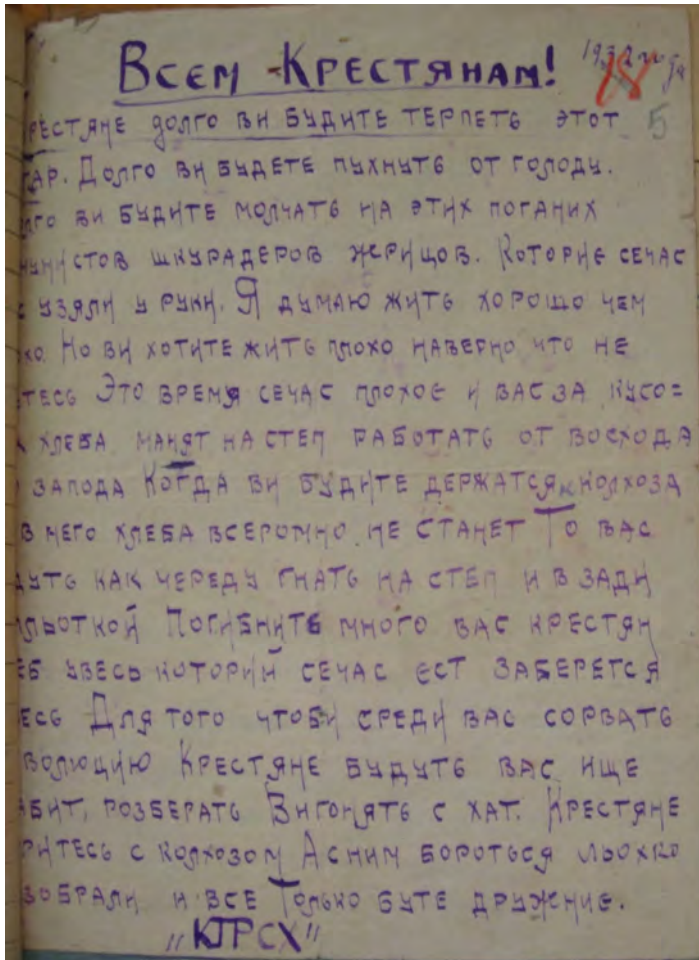 Всем Крестянам!
1932 года
18
5
рестяне долго ви будите терпеть этот
гар. Долго ви будете пухнуть от голоду.
лго ви будите молчать на этих поганих
мунистов шкурадеров жерицов. Которие сечас
с узяли у руки. Я думаю жить хорошо чем
хо. Но ви хотите жить плохо наверно что не
етесь Это время сечас плохое и вас за кусо=
к хлеба манят на степ работать от восхода
запода Когда ви будите держатся колхоза
в него хлеба всеромно не станет То вас
дуть как череду гнать на степ и в зади
льоткой Погибните много вас крестян
еб увесь который сечас ест заберется
есь Для того чтоби среди вас сорвать
волюцию Крестяне будуть вас ище
абит, розберать Вигонять с хат. Крестяне
ритесь с колхозом А сним бороться льохко
зобрали и все Только буте дружние.
"КПРСХ"